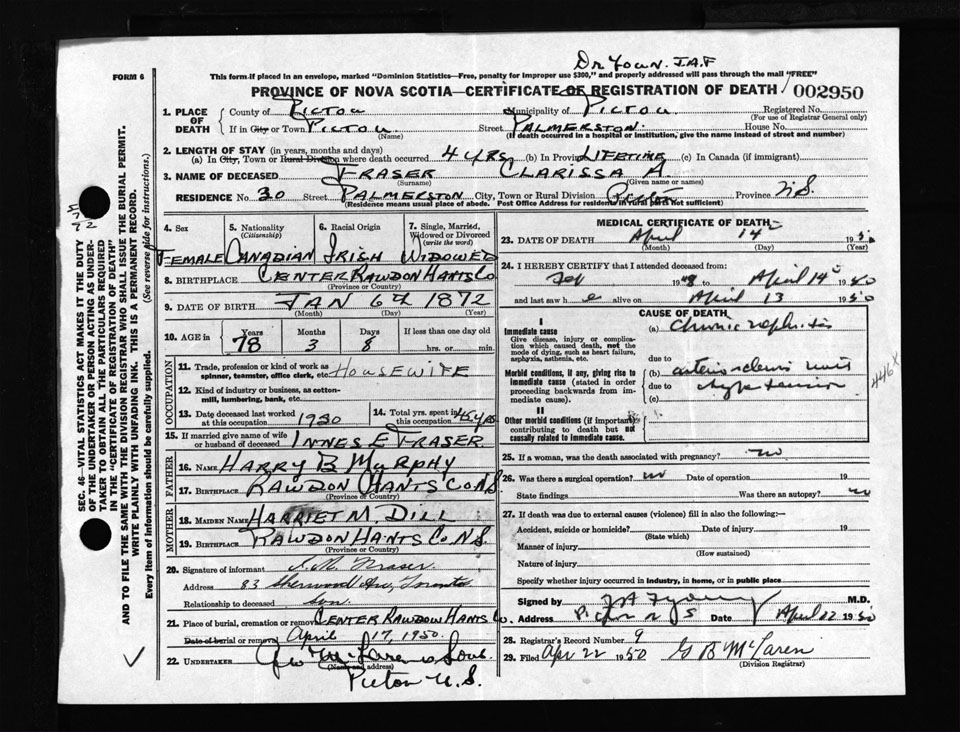 FORM 6
Dr Youn. J.A.F
This form if placed in an envelope, marked "Dominion Statistics—Free, penalty for improper use $300," and properly addressed will pass through the mail "FREE"
PROVINCE OF NOVA SCOTIA—CERTIFICATE OF REGISTRATION OF DEATH
002950
1. PLACE OF DEATH
County of PICTOU Municipality of PICTOU Registered No.
(For use of Registrar General only)
If in City or Town PICTOU Street PALMERSTON House No.
(Name) (If death occurred in a hospital or institution, give the name instead of street and number)
2. LENGTH OF STAY (in years, months and days)
(a) In City, Town or Rural Division where death occurred 4 YRS (b) In Province LIFETIME (c) In Canada (if immigrant)
3. NAME OF DECEASED FRASER CLARISSA A.
(Surname) (Given name or names)
RESIDENCE No. 30 Street PALMERSTON City, Town or Rural Division Pictou Province N.S.
(Residence means usual place of abode. Post Office Address for residents in rural parts not sufficient)
4. Sex 5. Nationality (Citizenship) 6. Racial Origin 7. Single, Married, Widowed or Divorced (write the word)
FEMALE CANADIAN IRISH WIDOWED
8. BIRTHPLACE CENTER RAWDON HANTS CO
(Province or Country)
9. DATE OF BIRTH JAN 6th 1872
(Month) (Day) (Year)
10. AGE in Years Months Days If less than one day old
78 3 8 hrs. or min.
OCCUPATION
11. Trade, profession or kind of work as spinner, teamster, office clerk, etc. HOUSEWIFE
12. Kind of industry or business, as cotton-mill, lumbering, bank, etc.
13. Date deceased last worked at this occupation 1930 14. Total yrs. spent in 45 yrs
15. If married give name of wife or husband of deceased INNES E FRASER
FATHER
16. NAME HARRY B MURPHY
17. BIRTHPLACE RAWDON HANTS CO N.S.
(Province or Country)
MOTHER
18. MAIDEN NAME HARRIET M. DILL
19. BIRTHPLACE RAWDON HANTS CO N.S.
(Province or Country)
20. Signature of informant Fraser
Address 83 Sherwood Ave, Toronto
Relationship to deceased son
21. Place of burial, cremation or removal CENTER RAWDON HANTS Co.
Date of burial or removal April 17, 1950.
22. UNDERTAKER Geo McLaren & Sons.
(Name and address)
Pictou N.S.
MEDICAL CERTIFICATE OF DEATH
23. DATE OF DEATH April 14 1950
(Month) (Day) (Year)
24. I HEREBY CERTIFY that I attended deceased from:
Sep 1948 to April 14 1950
and last saw h e alive on April 13 1950
CAUSE OF DEATH
I
Immediate cause (a) Chronic nephritis
Give disease, injury or complication which caused death, not the mode of dying, such as heart failure, asphyxia, asthenia, etc.
due to
Morbid conditions, if any, giving rise to immediate cause (stated in order proceeding backwards from immediate).
(b) arteriosclerosis with
due to hypertension
(c)
446X
II
Other morbid conditions (if important) contributing to death but not causally related to immediate cause.
25. If a woman, was the death associated with pregnancy? no
26. Was there a surgical operation? no Date of operation 19
State findings Was there an autopsy? no
27. If death was due to external causes (violence) fill in also the following:—
Accident, suicide or homicide? Date of injury 19
(State which)
Manner of injury
(How sustained)
Nature of injury
Specify whether injury occurred in industry, in home, or in public place
Signed by J A F Young M.D.
Address Pictou N S Date April 22 1950
28. Registrar's Record Number 9
29. Filed Apr 22 1950 G B McLaren
(Division Registrar)
SEC. 46—VITAL STATISTICS ACT MAKES IT THE DUTY
OF THE UNDERTAKER OR PERSON ACTING AS UNDER-
TAKER TO OBTAIN ALL THE PARTICULARS REQUIRED
IN THE "CERTIFICATE OF REGISTRATION OF DEATH"
AND TO FILE THE SAME WITH THE DIVISION REGISTRAR WHO SHALL ISSUE THE BURIAL PERMIT.
WRITE PLAINLY WITH UNFADING INK. THIS IS A PERMANENT RECORD.
Every item of information should be carefully supplied. (See reverse side for instructions.)